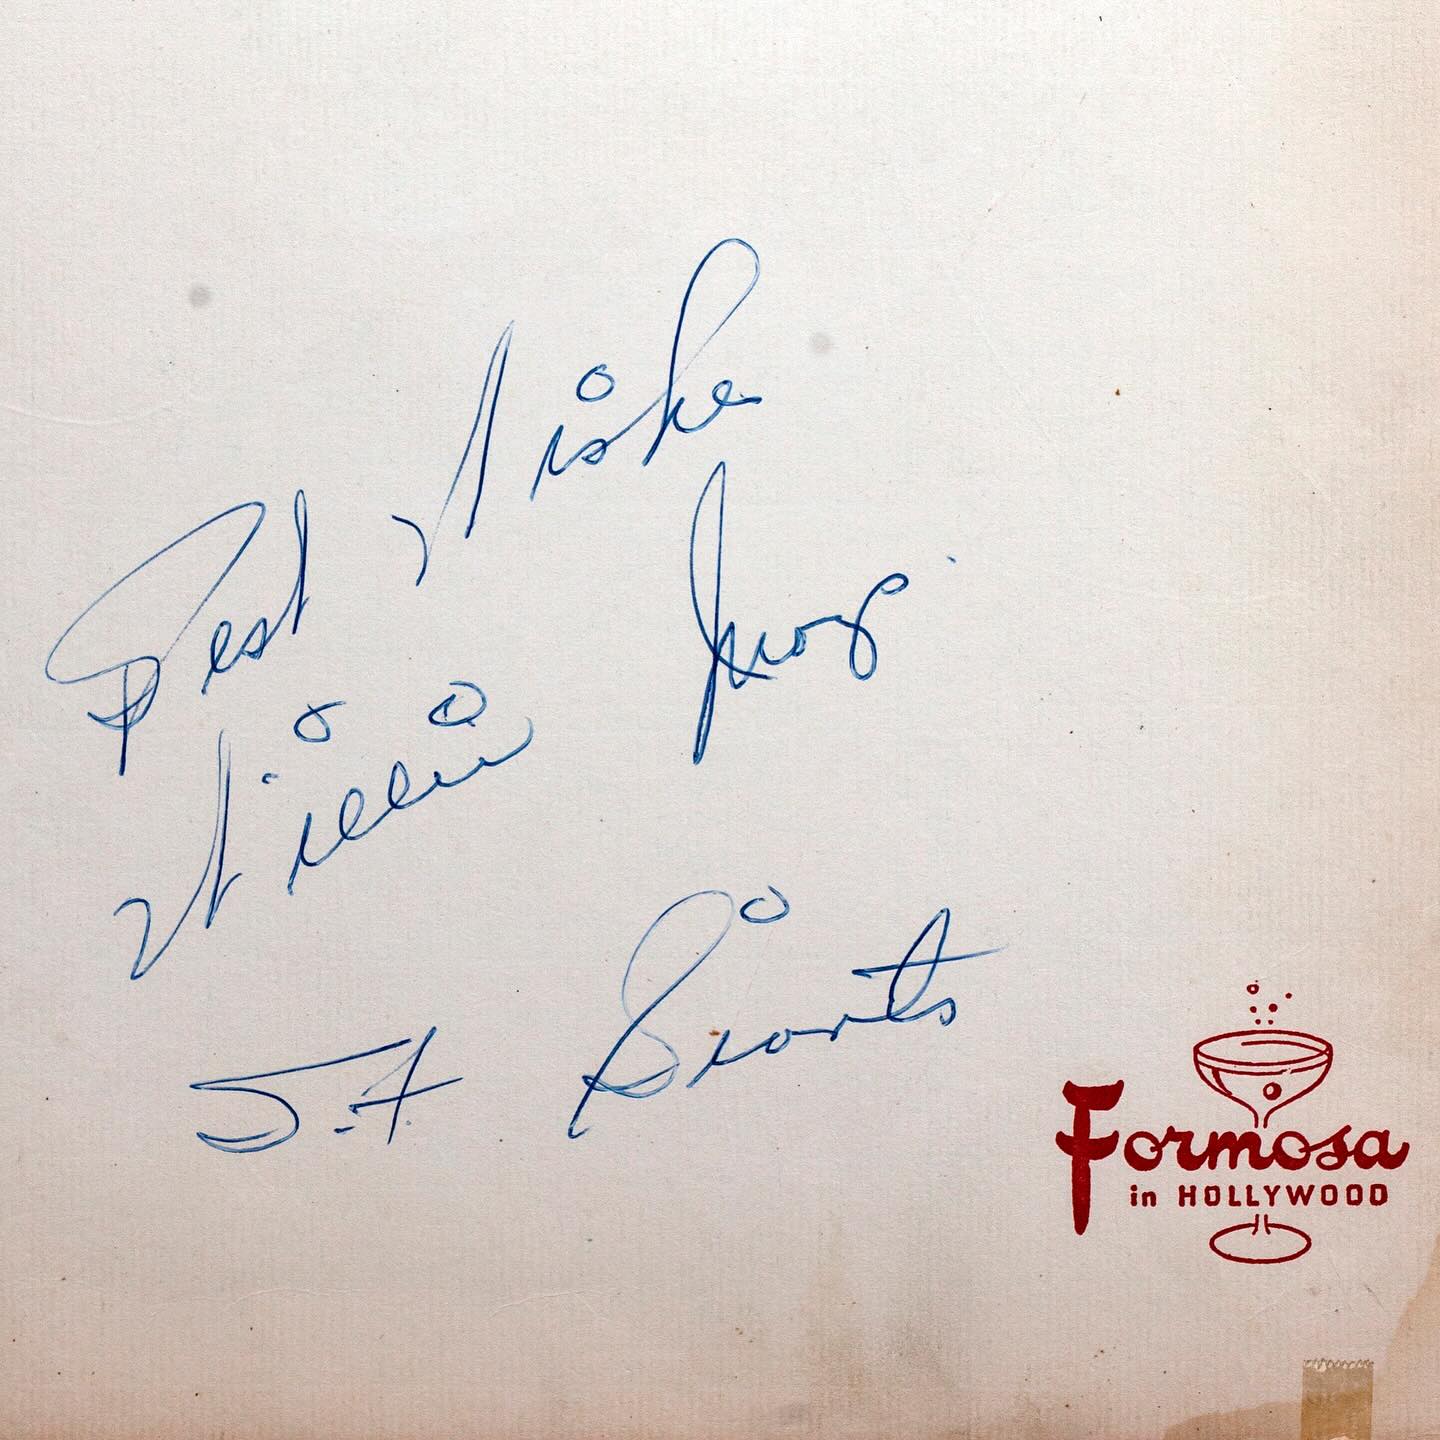 Best Wishes
Willie Mays
S.F. Giants
Formosa
in HOLLYWOOD